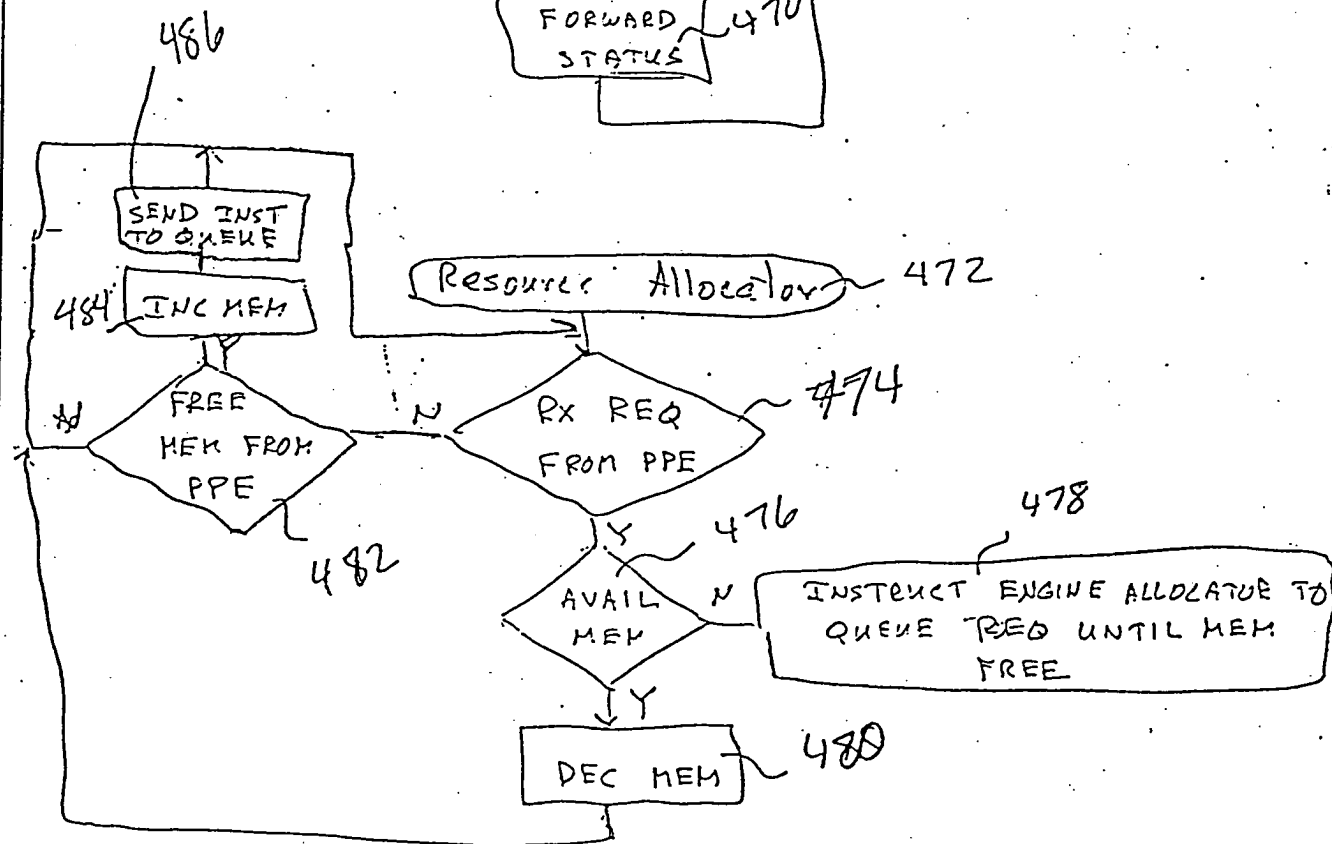 FORWARD
STATUS
470
486
SEND INST
TO QUEUE
484
INC MEM
Y
Resource Allocator
472
FREE
MEM FROM
PPE
N
482
RX REQ
FROM PPE
474
Y
476
AVAIL
MEM
N
478
INSTRUCT ENGINE ALLOCATOR TO
QUEUE REQ UNTIL MEM
FREE
Y
DEC MEM
480